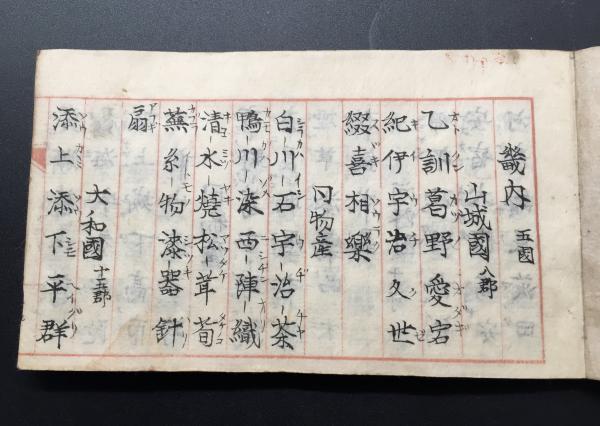 畿内 五國
山城國 八郡
乙訓葛野愛宕
紀伊宇治久世
綴喜相樂
同物産
白川石宇治茶
鴨川染西陣織
清水焼松茸筍
蕪糸物漆器針
扇
大和國 十五郡
添上添下平群